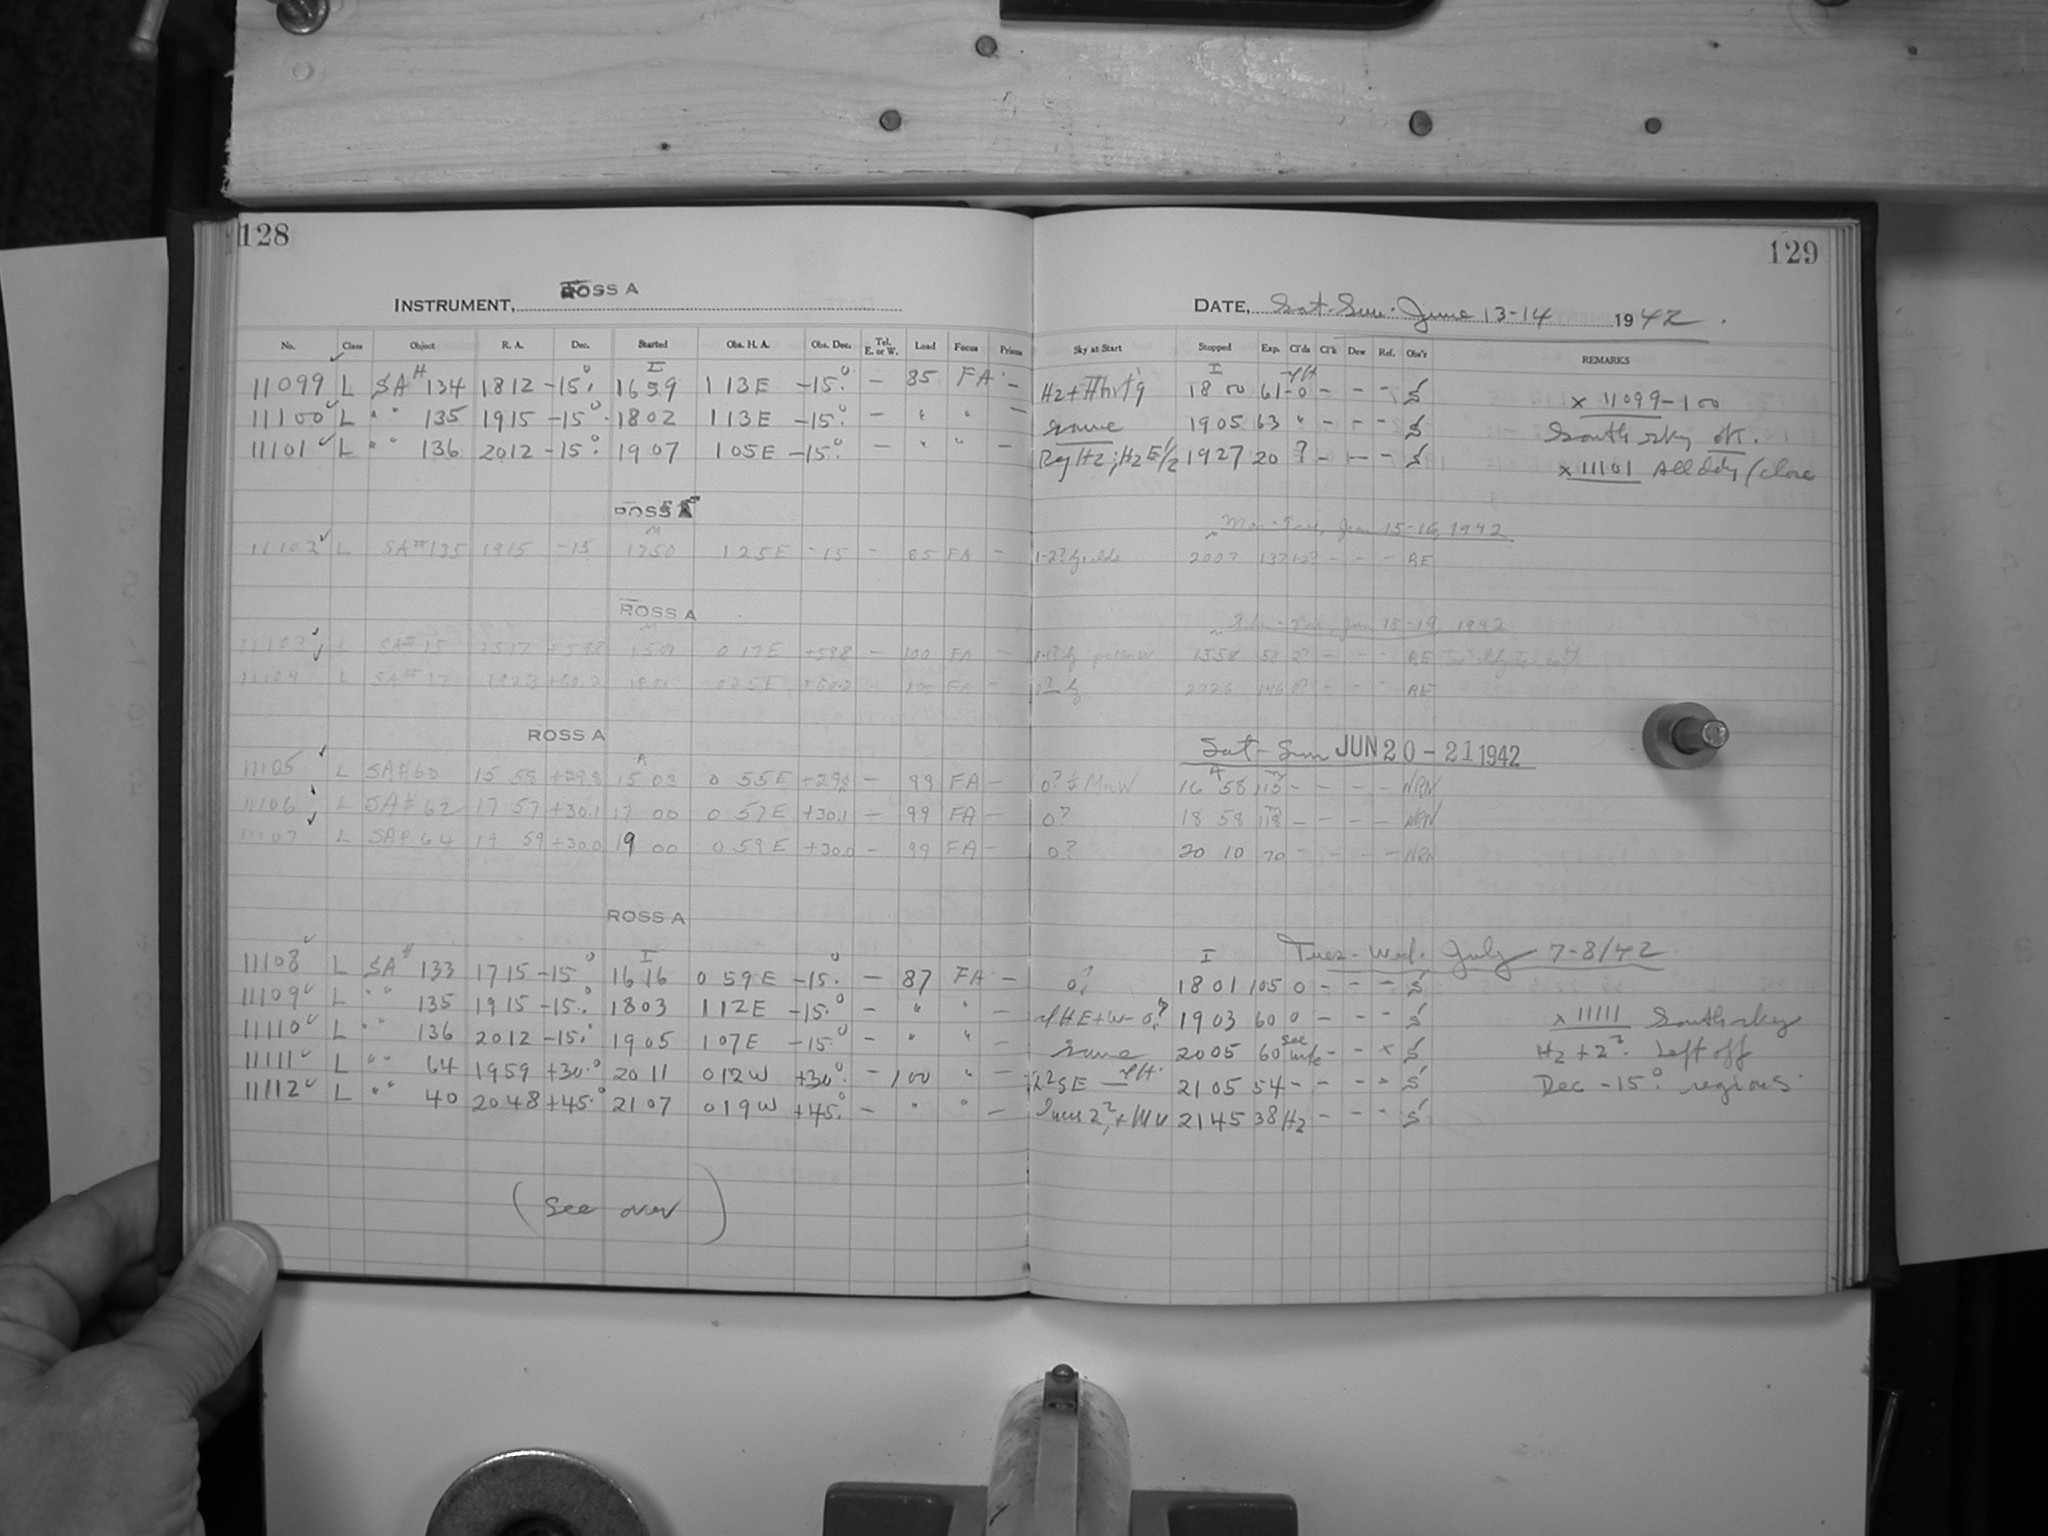 128
129
INSTRUMENT, ROSS A
DATE, Sat-Sun. June 13-14 1942.
No. Class Object R. A. Dec. Started Obs. H. A. Obs. Dec. Tel. E. or W. Load Focus Prism Sky at Start Stopped Exp. Cl'ds Cl'k Dew Ref. Obs'r REMARKS
11099 L SA# 134 1812 -15.° 1659 113E -15.° - 85 FA - 1800 61 - - - S x 11099-100
11100 L " " 135 1915 -15° 1802 113E -15.° - " " - same 1905 63 " - - - S South sky ok.
11101 L " " 136 2012 -15.° 1907 105E -15.° - " " - 1927 20 ? - - - S x 11101
ROSS A
Mon-Tues, Jun 15-16, 1942
11102 L SA# 135 1915 -15 1750 125E -15 - 85 FA - 2007 137 - - - RE
ROSS A
Jun 18-19, 1942
11103 L SA# 15 1517 +59.8 1501 0 17E +59.8 - 100 FA - 1558 58 - - - RE
11104 L SA# 17 1923 +60.2 FA - - - - RE
ROSS A
Sat-Sun JUN 20-21 1942
11105 L SA# 60 15 58 +29.8 15 03 0 55E +29.8 - 99 FA - 0? 16 58 115 - - - - NRN
11106 L SA# 62 17 57 +30.1 17 00 0 57E +30.1 - 99 FA - 0? 18 58 118 - - - - NRN
11107 L SA# 64 19 59 +30.0 19 00 0 59E +30.0 - 99 FA - 0? 20 10 70 - - - - NRN
ROSS A
Tues-Wed. July 7-8/42
11108 L SA# 133 1715 -15° 1616 059E -15.° - 87 FA - 0? 1801 105 0 - - - S
11109 L " " 135 1915 -15.° 1803 112E -15.° - " " - 1903 60 0 - - - S x 11111 South sky
11110 L " " 136 2012 -15.° 1905 107E -15° - " " - same 2005 60 - - x S Hz + 2?. Left off
11111 L " " 64 1959 +30.° 2011 012W +30.° - 100 " - 2105 54 - - - - S Dec -15.° regions.
11112 L " " 40 2048 +45.° 2107 019W +45.° - " " - 2145 38 Hz - - - S
(See over)